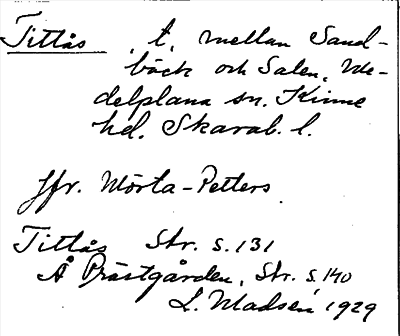 Tittås, t. mellan Sand-
bäck och Salen, Me-
delplana sn. Kinne
hd. Skarab. l.
Jfr. Mörta-Petters.
Tittås Str. s. 131
Å Prästgården, Str. s. 140
L. Madsén 1929